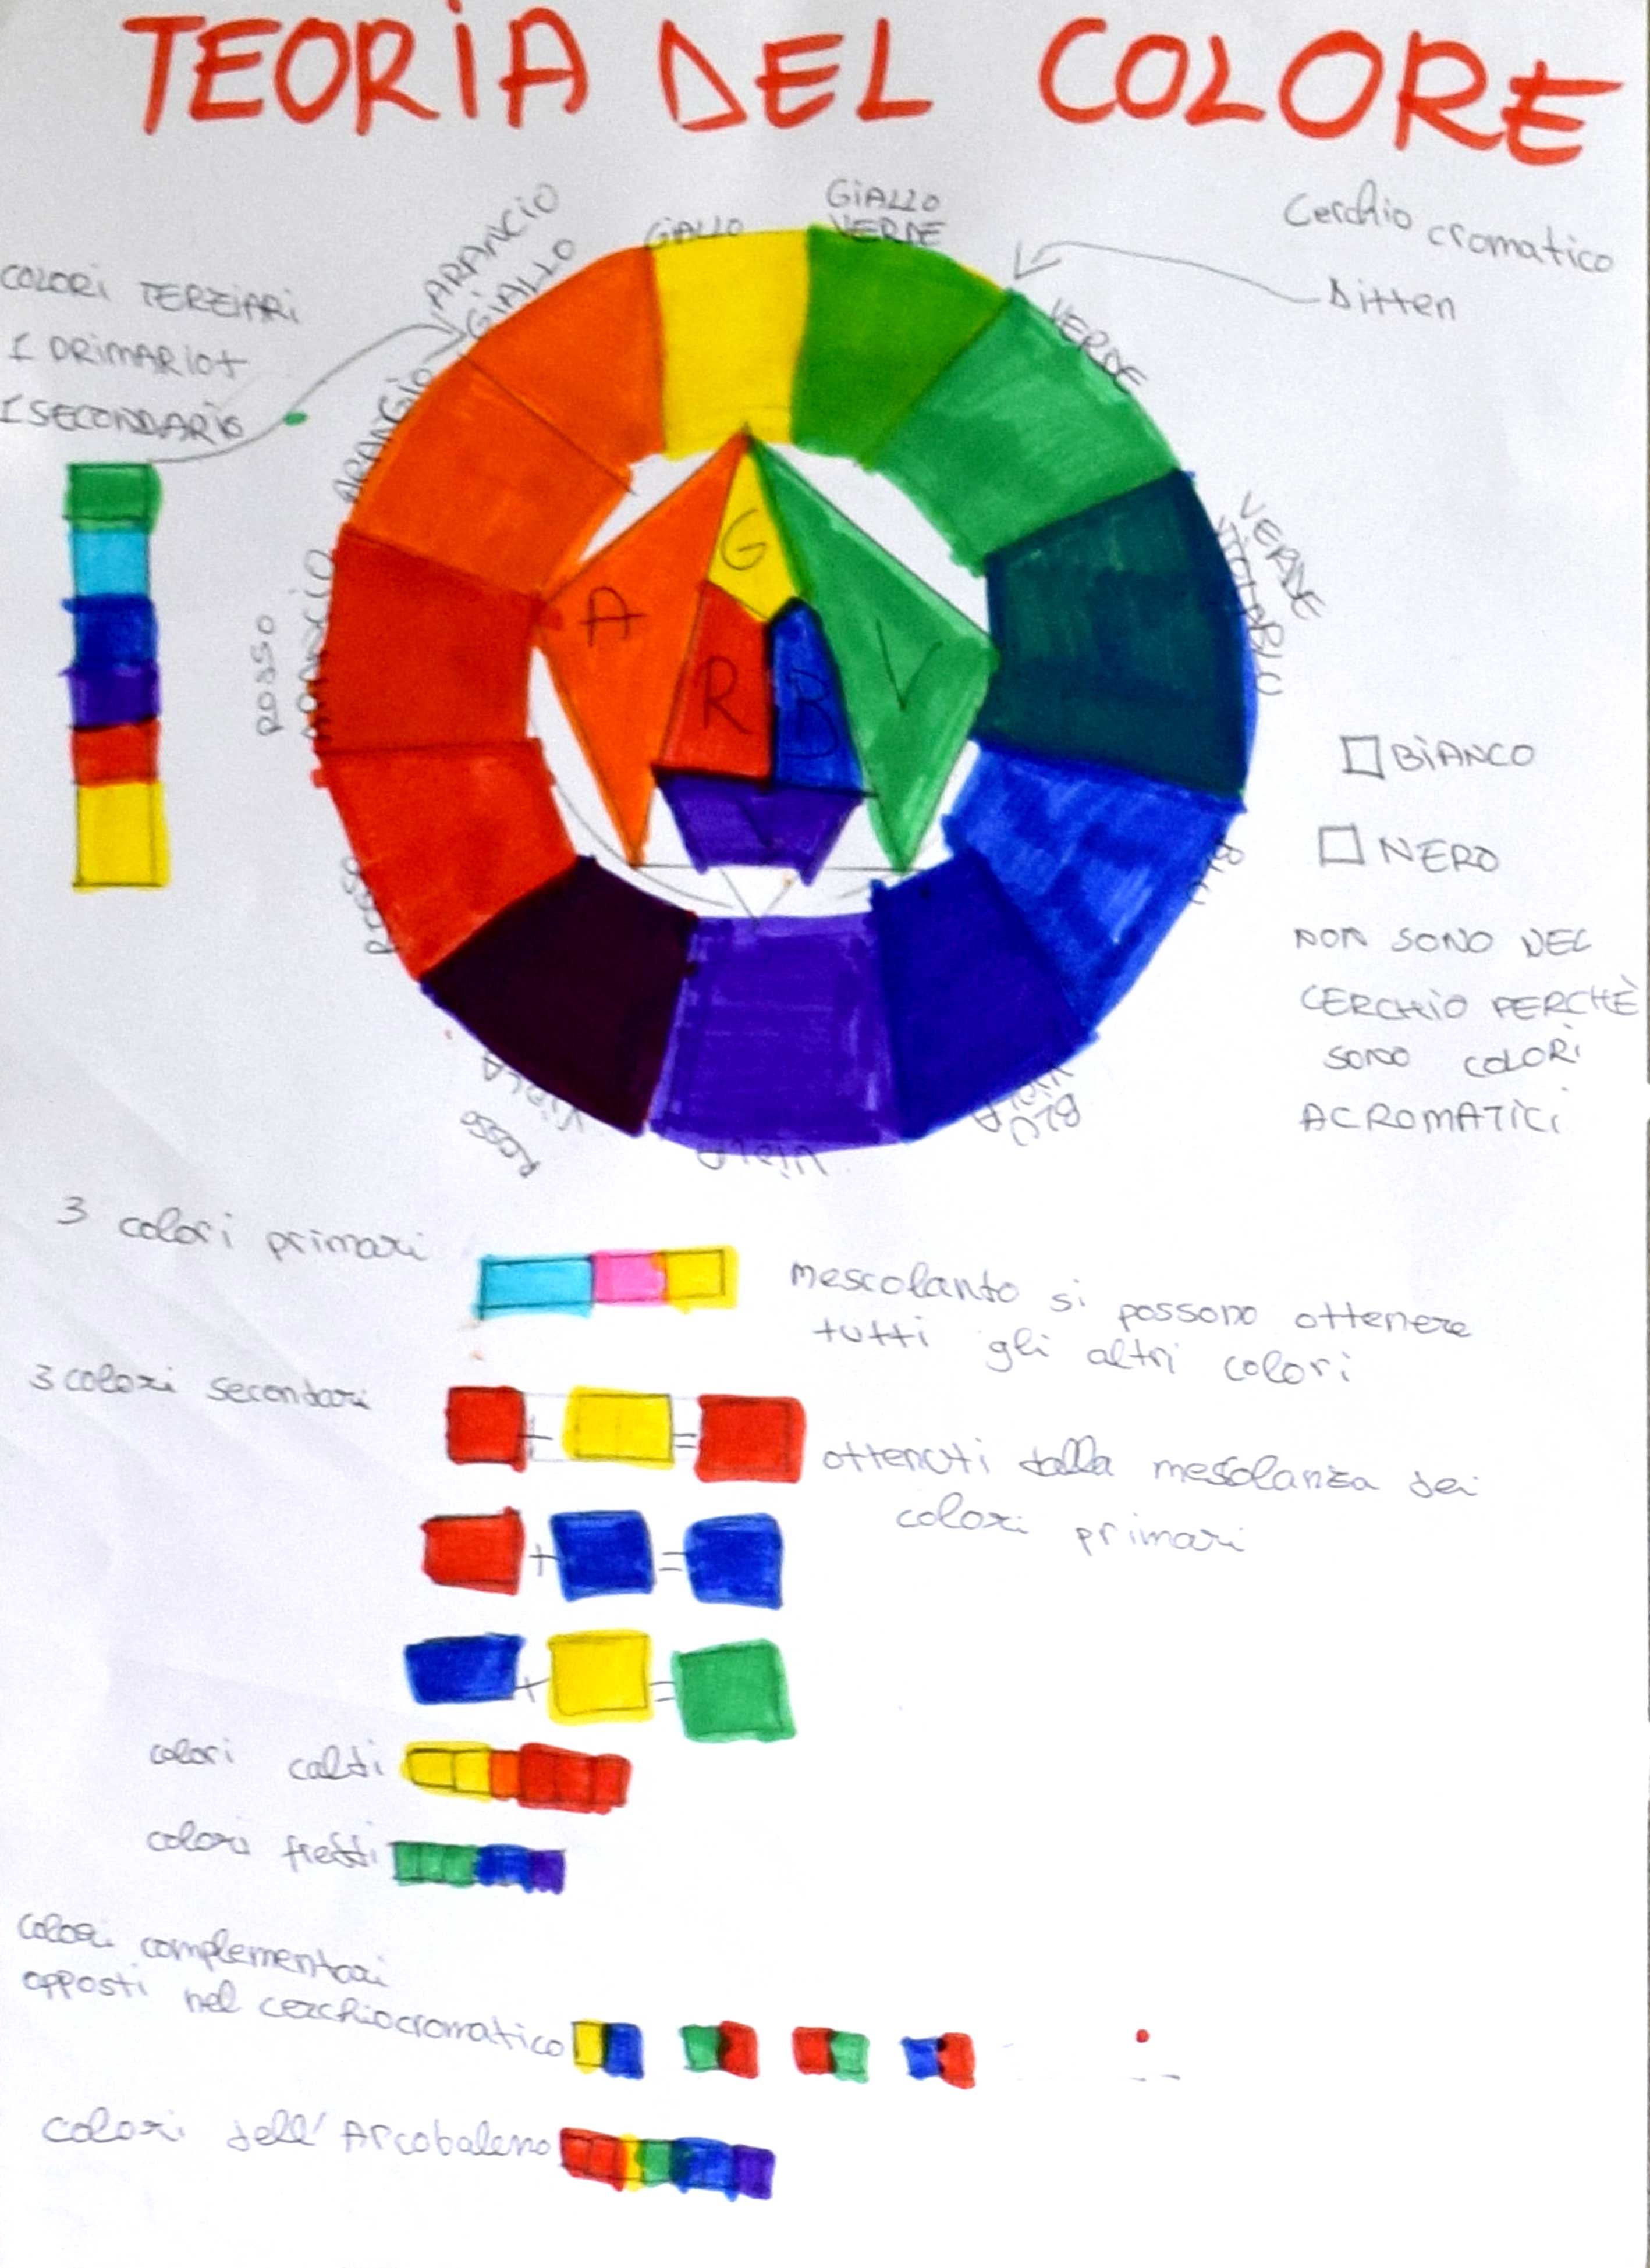 TEORIA DEL COLORE
Cerchio cromatico
Ditten
COLORI TERZIARI
1 PRIMARIO+
1 SECONDARIO
ARANCIO
GIALLO
GIALLO
GIALLO
VERDE
VERDE
VERDE
BLU
BLU
VIOLA
VIOLA
ROSSO
VIOLA
ROSSO
ROSSO
ARANCIO
ARANCIO
G
A
R
B
V
V
BIANCO
NERO
NON SONO NEL
CERCHIO PERCHÈ
SONO COLORI
ACROMATICI
3 colori primari
mescolanto si possono ottenere
tutti gli altri colori
3 colori secondari
+ =
ottenuti dalla mesolanza dei
colori primari
+ =
+ =
colori caldi
colori freddi
colori complementari
opposti nel cerchiocromatico
colori dell' Arcobaleno